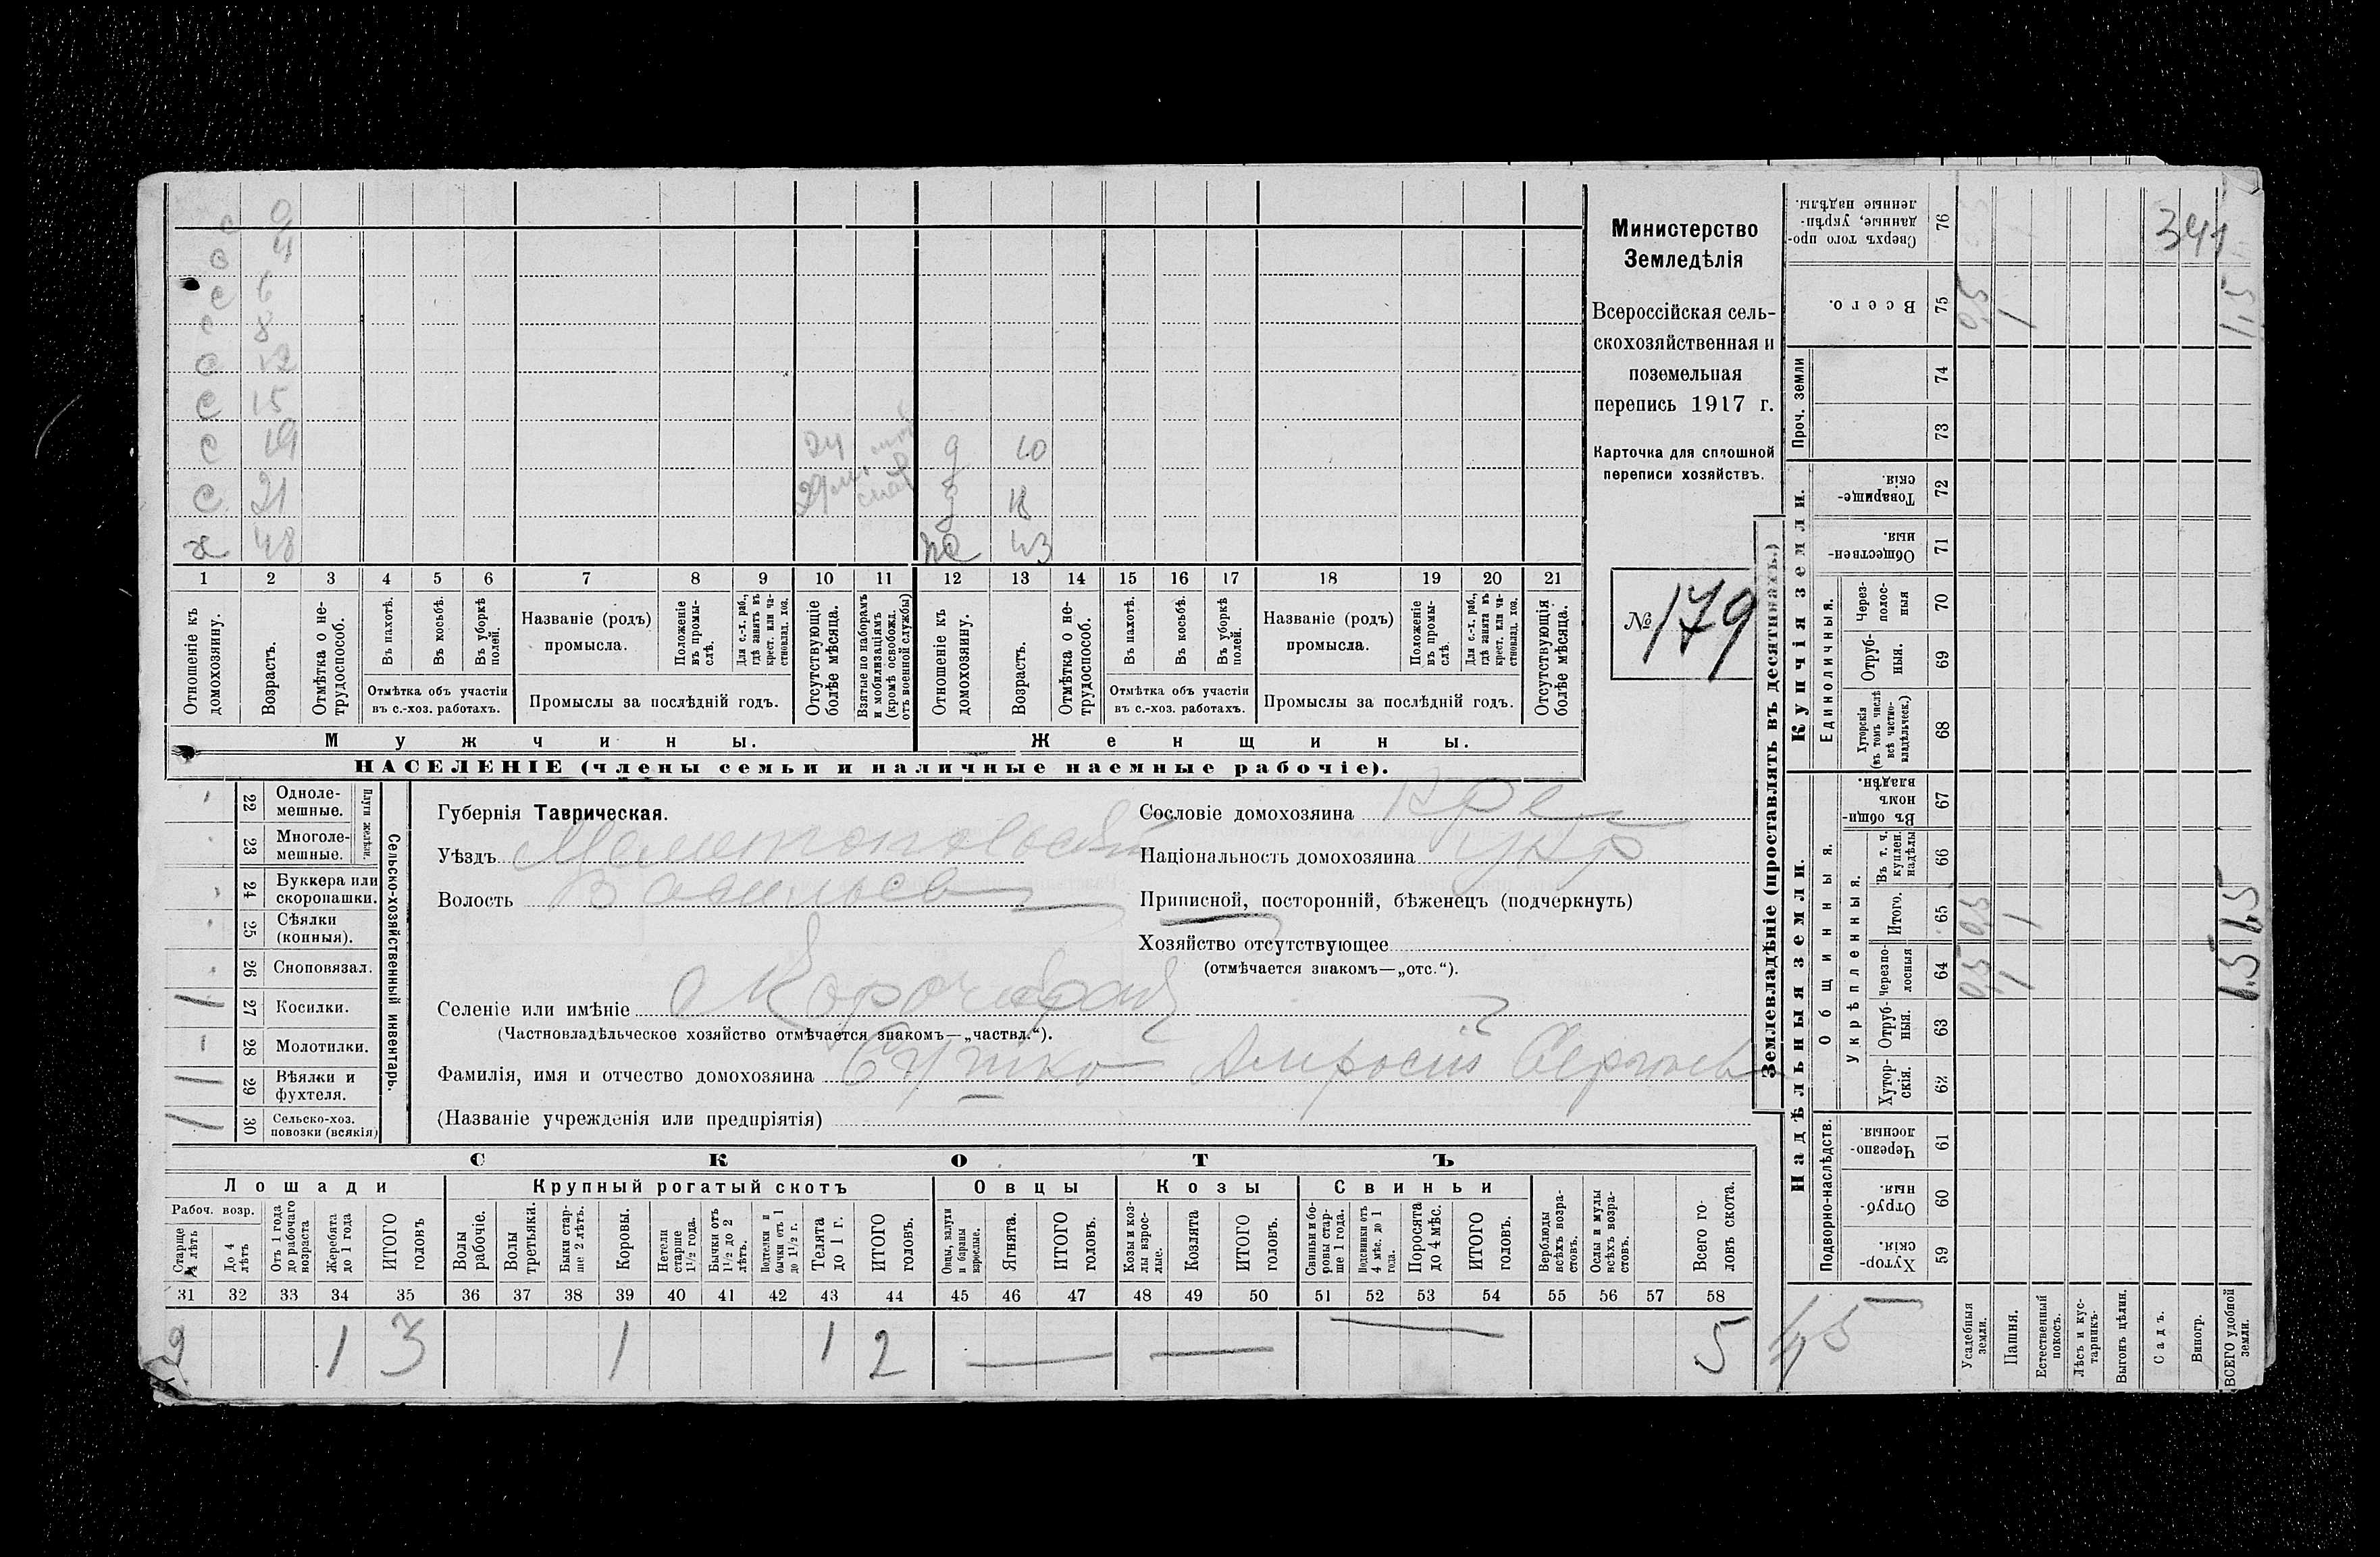 с 0
с 4
с 6
с 8
с 12
с 15
с 19 24 д 10
с 21 24 д 18
х 48 43
1 2 3 4 5 6 7 8 9 10 11 12 13 14 15 16 17 18 19 20 21
Отношеніе къ домохозяину.
Возрастъ.
Отмѣтка о нетрудоспособ.
Въ пахотѣ.
Въ косьбѣ.
Въ уборкѣ полей.
Отмѣтка объ участіи
въ с.-хоз. работахъ.
Названіе (родъ)
промысла.
Положеніе въ промыслѣ.
Для с.-х. раб., гдѣ занятъ въ крест. или частновлад. хоз.
Промыслы за послѣдній годъ.
Отсутствующіе болѣе мѣсяца.
Взятые по наборамъ и мобилизаціямъ (кромѣ освобожд. отъ военной службы)
Отношеніе къ домохозяину.
Возрастъ.
Отмѣтка о нетрудоспособ.
Въ пахотѣ.
Въ косьбѣ.
Въ уборкѣ полей.
Отмѣтка объ участіи
въ с.-хоз. работахъ.
Названіе (родъ)
промысла.
Положеніе въ промыслѣ.
Для с.-х. раб., гдѣ занята въ крест. или частновлад. хоз.
Промыслы за послѣдній годъ.
Отсутствующія болѣе мѣсяца.
Мужчины. Женщины.
НАСЕЛЕНІЕ (члены семьи и наличные наемные рабочіе).
Министерство
Земледѣлія
Всероссійская сель-
скохозяйственная и
поземельная
перепись 1917 г.
Карточка для сплошной
переписи хозяйствъ.
№ 179
Сельско-хозяйственный инвентарь.
Плуги желѣзн.
22 Одноле-
мешные.
23 Многоле-
мешные.
24 Буккера или
скоропашки.
25 Сѣялки
(конныя).
26 Сноповязал.
1 27 Косилки.
28 Молотилки.
1 29 Вѣялки и
фухтеля.
1 30 Сельско-хоз.
повозки (всякія)
Губернія Таврическая.
Уѣздъ Мелитопольскій
Волость Васильев
Селеніе или имѣніе
(Частновладѣльческое хозяйство отмѣчается знакомъ—„частвл.“).
Фамилія, имя и отчество домохозяина
(Названіе учрежденія или предпріятія)
Сословіе домохозяина кре
Національность домохозяина укр
Приписной, посторонній, бѣженецъ (подчеркнуть)
Хозяйство отсутствующее
(отмѣчается знакомъ—„отс.“).
СКОТЪ
Лошади Крупный рогатый скотъ Овцы Козы Свиньи
Рабоч. возр.
Старше 4 лѣтъ
До 4 лѣтъ
Отъ 1 года до рабочаго возраста
Жеребята до 1 года
ИТОГО головъ
Волы рабочіе.
Волы третьяки.
Быки старше 2 лѣтъ.
Коровы.
Нетели старше 1½ года.
Бычки отъ 1½ до 2 лѣтъ.
Подтелки и бычки отъ 1 до 1½ г.
Телята до 1 г.
ИТОГО головъ.
Овцы, валухи и бараны взрослые.
Ягнята.
ИТОГО головъ.
Козы и козлы взрослые.
Козлята
ИТОГО головъ.
Свиньи и боровы старше 1 года.
Подсвинки отъ 4 мѣс. до 1 года.
Поросята до 4 мѣс.
ИТОГО головъ.
Верблюды всѣхъ возрастовъ.
Ослы и мулы всѣхъ возрастовъ.
Всего головъ скота.
31 32 33 34 35 36 37 38 39 40 41 42 43 44 45 46 47 48 49 50 51 52 53 54 55 56 57 58
2 1 3 1 1 2 5
Землевладѣніе (проставлять въ десятинахъ.)
Надѣльныя земли.
Купчія земли.
Проч. земли
Подворно-наслѣдств.
Общинныя.
Укрѣпленныя.
Единоличныя.
Сверхъ того проданные, укрѣпленные надѣлы. 76 341
Всего. 75 0,5 1 1,5
74
73
Товарищескія. 72
Общественныя. 71
Черезполосныя 70
Отрубныя. 69
Хуторскія (въ томъ числѣ всѣ частновладѣльческ.) 68
Въ общинномъ владѣн. 67
Въ т. ч. куплен. надѣлы 66
Итого. 65 0,5 1 1,5
Черезполосныя 64 0,5 1 1,5
Отрубныя. 63
Хуторскія. 62
Черезполосныя. 61
Отрубныя. 60
Хуторскія. 59
Усадебныя земли.
Пашня.
Естественный покосъ.
Лѣсъ и кустарникъ.
Выгонъ цѣлин.
Садъ.
Виногр.
ВСЕГО удобной земли.